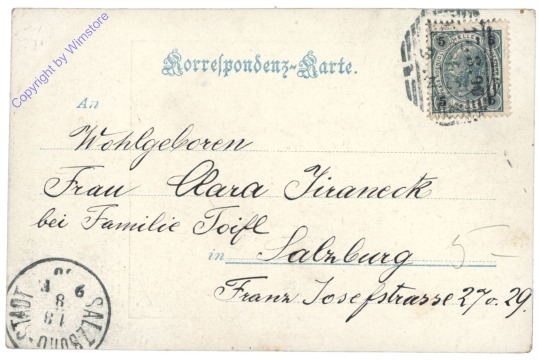 Copyright by Wimstore
Korrespondenz-Karte.
An
Wohlgeboren
Frau Clara Jiraneck
bei Familie Toifl
in Salzburg 5-
Franz Josefstrasse 27 o. 29.
SALZBURG-STADT
13
8